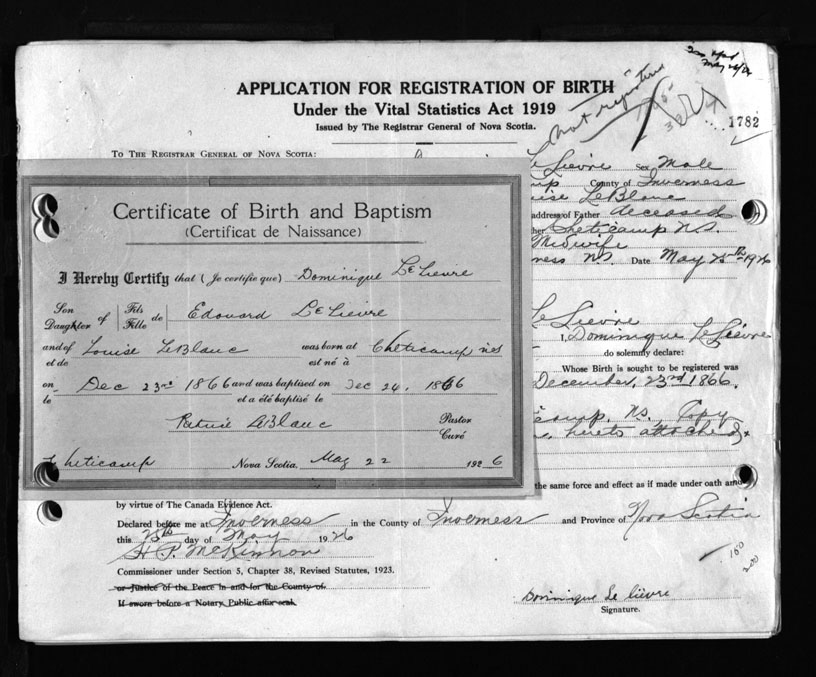 APPLICATION FOR REGISTRATION OF BIRTH
Under the Vital Statistics Act 1919
Issued by The Registrar General of Nova Scotia.
Not registered
1782
TO THE REGISTRAR GENERAL OF NOVA SCOTIA:
Le Lievre Sex Male
County of Inverness
LeBlanc
address of Father deceased
Cheticamp N.S.
Midwife
ness N.S. Date May 25th 1926
Le Lievre
I, Dominique LeLievre
do solemnly declare:
Whose Birth is sought to be registered was
December, 23rd 1866.
camp, N.S. Copy
hereto attached
Certificate of Birth and Baptism
(Certificat de Naissance)
I Hereby Certify that (Je certifie que) Dominique LeLievre
Son Daughter of Fils Fille de Edouard LeLievre
and of et de Louise LeBlanc was born at est né à Cheticamp NS
on le Dec 23rd 1866 and was baptised on et a été baptisé le Dec 24, 1866
LeBlanc Pastor Curé
Cheticamp Nova Scotia, May 22 1926
the same force and effect as if made under oath and
by virtue of The Canada Evidence Act.
Declared before me at Inverness in the County of Inverness and Province of Nova Scotia
this 25th day of May 1926
H P. McKinnon
Commissioner under Section 5, Chapter 38, Revised Statutes, 1923.
or Justice of the Peace in and for the County of
If sworn before a Notary Public affix seal.
Dominique Le lièvre
Signature.
150